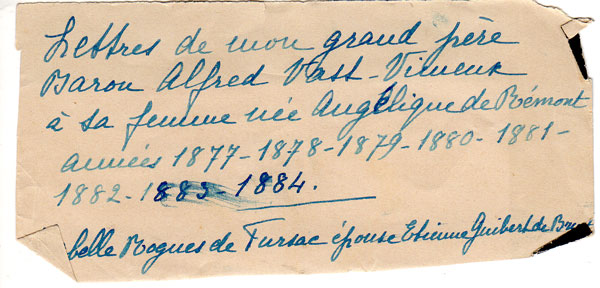 Lettres de mon grand père
Baron Alfred Vast-Vimeux
à sa femme née Angélique de Rémont
années 1877-1878-1879-1880-1881-
1882-1883-1884.
belle Rogues de Fursac épouse Etienne Guibert de